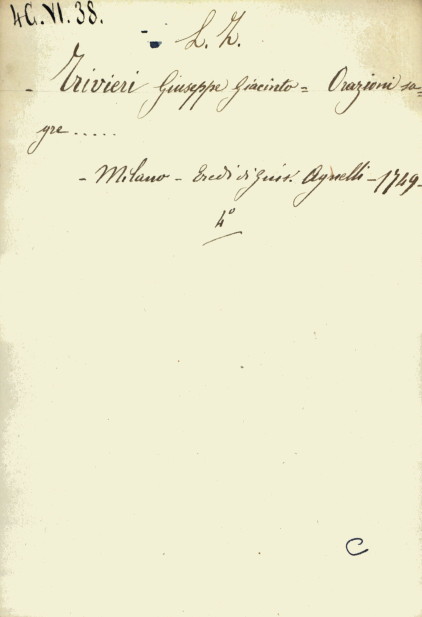 4G.VI.38.
L. Z.
- Trivieri Giuseppe Giacinto = Orazioni sa=
gre.....
- Milano - Eredi di Gius. Agnelli - 1749 -
4º
C